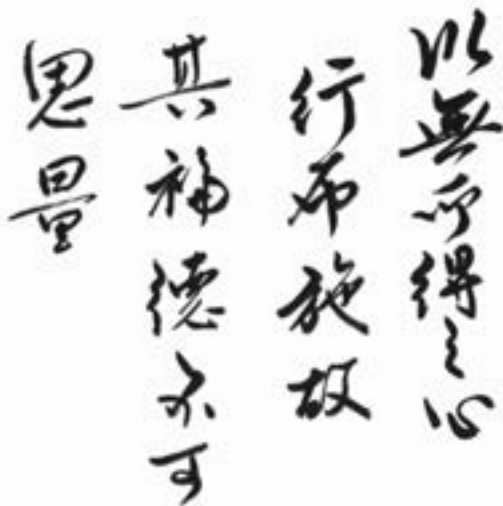 以無所得之心
行布施故
其福德不可
思量